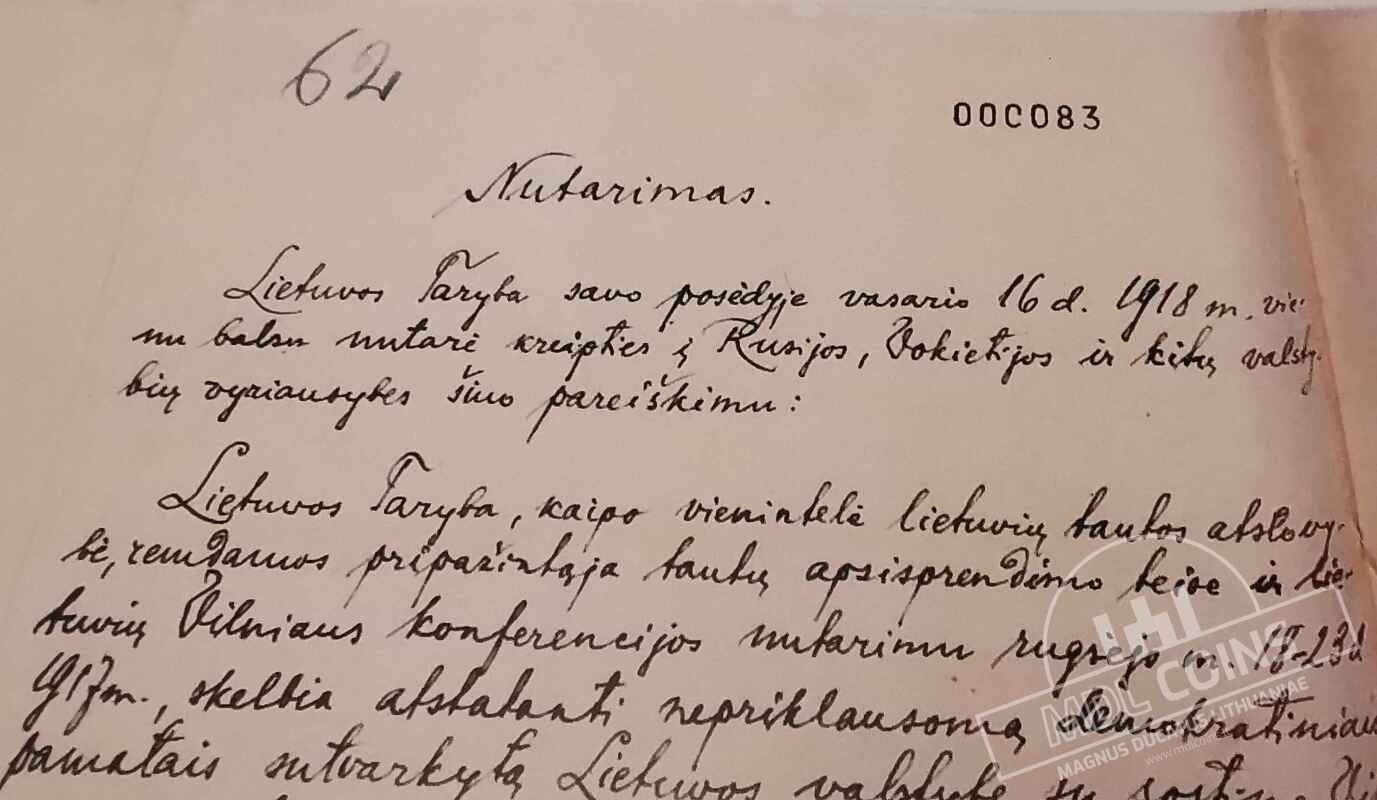 62
00C083
Nutarimas.
Lietuvos Taryba savo posėdyje vasario 16 d. 1918 m. vie-
nu balsu nutarė kreipties į Rusijos, Vokietijos ir kitų valsty-
bių vyriausybes šiuo pareiškimu:
Lietuvos Taryba, kaipo vienintelė lietuvių tautos atstovy-
bė, remdamos pripažintąja tautų apsisprendimo teise ir lie-
tuvių Vilniaus konferencijos nutarimu rugsėjo m. 18-23 d
1917 m., skelbia atstatanti nepriklausomą demokratiniais
pamatais sutvarkytą Lietuvos valstybę su sostine
MDL COINS
MAGNUS DUCATUS LITHUANIAE